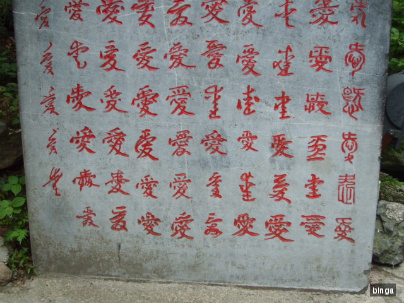 愛愛愛愛愛愛
愛愛愛愛愛愛
愛愛愛愛愛愛
愛愛愛愛愛愛
愛愛愛愛愛愛
愛愛愛愛愛愛
愛愛愛愛愛愛
愛愛愛愛愛愛
愛愛愛愛愛愛
愛愛愛愛愛
binga